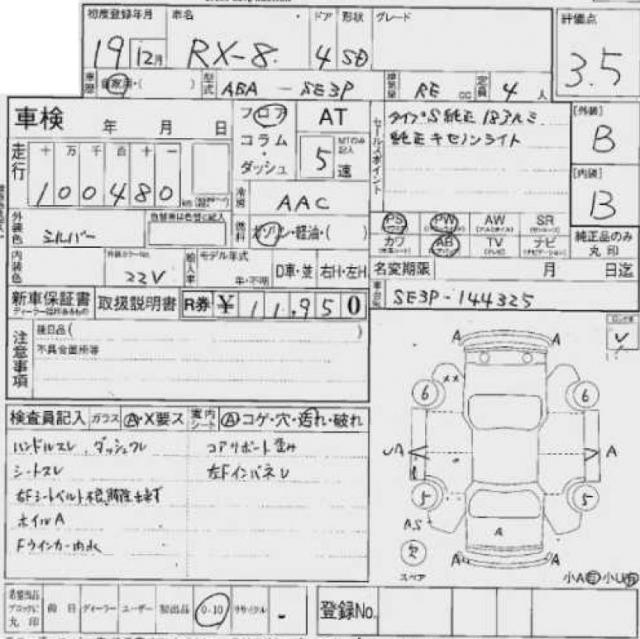 初度登録年月 車名 ドア 形状 グレード 評価点
19年 12月 RX-8 4 SD 3.5
車歴 自家用・( ) 型式 ABA - SE3P 排気量 RE cc 定員 4 人
車検 年 月 日
フロア コラム・ダッシュ AT 5 速
セールスポイント
タイプS 純正18アルミ
純正キセノンライト
[外装] B
[内装] B
走行 十 万 千 百 十 一
100480 km
冷房 AAC
外装色 シルバー 色替車は色替に記入
燃料 ガソリン・軽油・( )
PS PW AW SR
カワ AB TV ナビ
純正品のみ丸印
内装色 外装カラーNo. 22V 輸入車 モデル年式 年・不明 D車・並 右H・左H
名変期限 月 日迄
新車保証書 取扱説明書 R券 ¥ 11,950
車台No. SE3P-144325
注意事項 後日品( )
不具合箇所等
検査員記入 ガラス A・X要ス 室内シート A コゲ・穴・汚れ・破れ
ハンドルスレ、ダッシュワレ
コアサポート歪み
シートスレ
左FインパネU
ホイルA
Fウインカー内水
A A
6 XX 6
UA A
5 5
AS A
スペア A A
小A 小U
希望当品ブロックに丸印 前日 ディーラー ユーザー 初出品 0-10 リサイクル -
登録No.